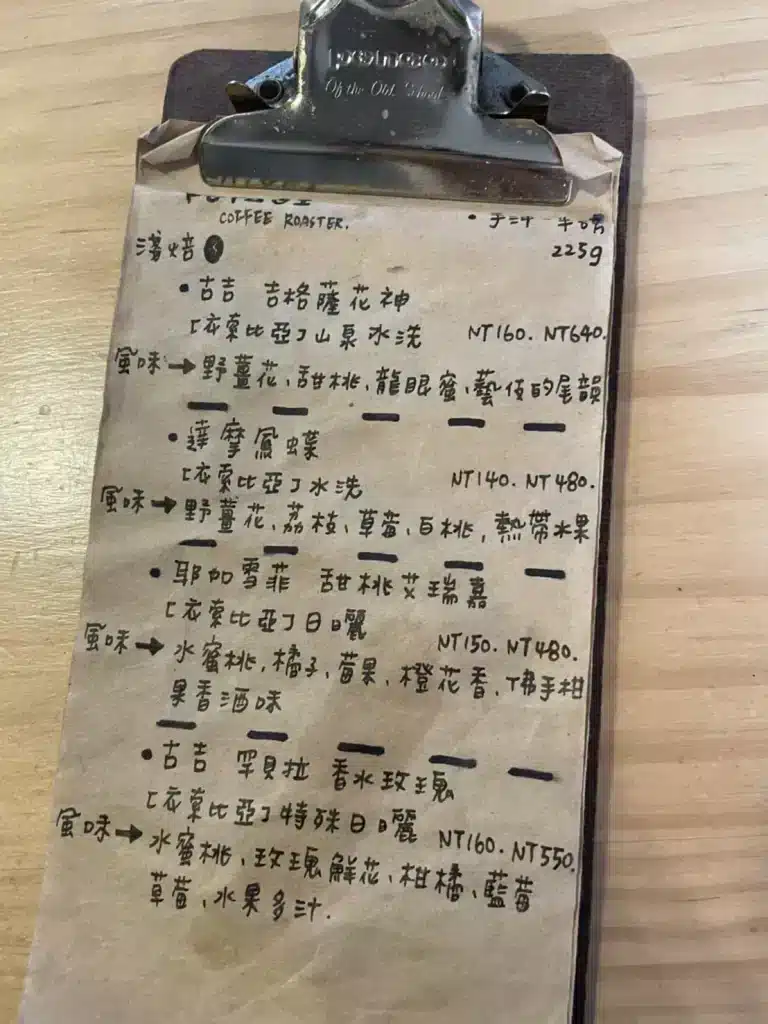 Of the Old School
COFFEE ROASTER.
225g
淺焙
•古吉 吉格薩花神
[衣索比亞]山泉水洗 NT160. NT640.
風味→野薑花、甜桃、龍眼蜜、藝伎的尾韻
•達摩鳳蝶
[衣索比亞]水洗 NT140. NT480.
風味→野薑花、荔枝、草莓、白桃,熱帶水果
•耶加雪菲 甜桃艾瑞嘉
[衣索比亞]日曬 NT150. NT480.
風味→水蜜桃,橘子、莓果、橙花香、佛手柑
果香酒味
•古吉 罕貝拉 香水玫瑰
[衣索比亞]特殊日曬 NT160. NT550.
風味→水蜜桃、玫瑰鮮花、柑橘、藍莓
草莓、水果多汁.